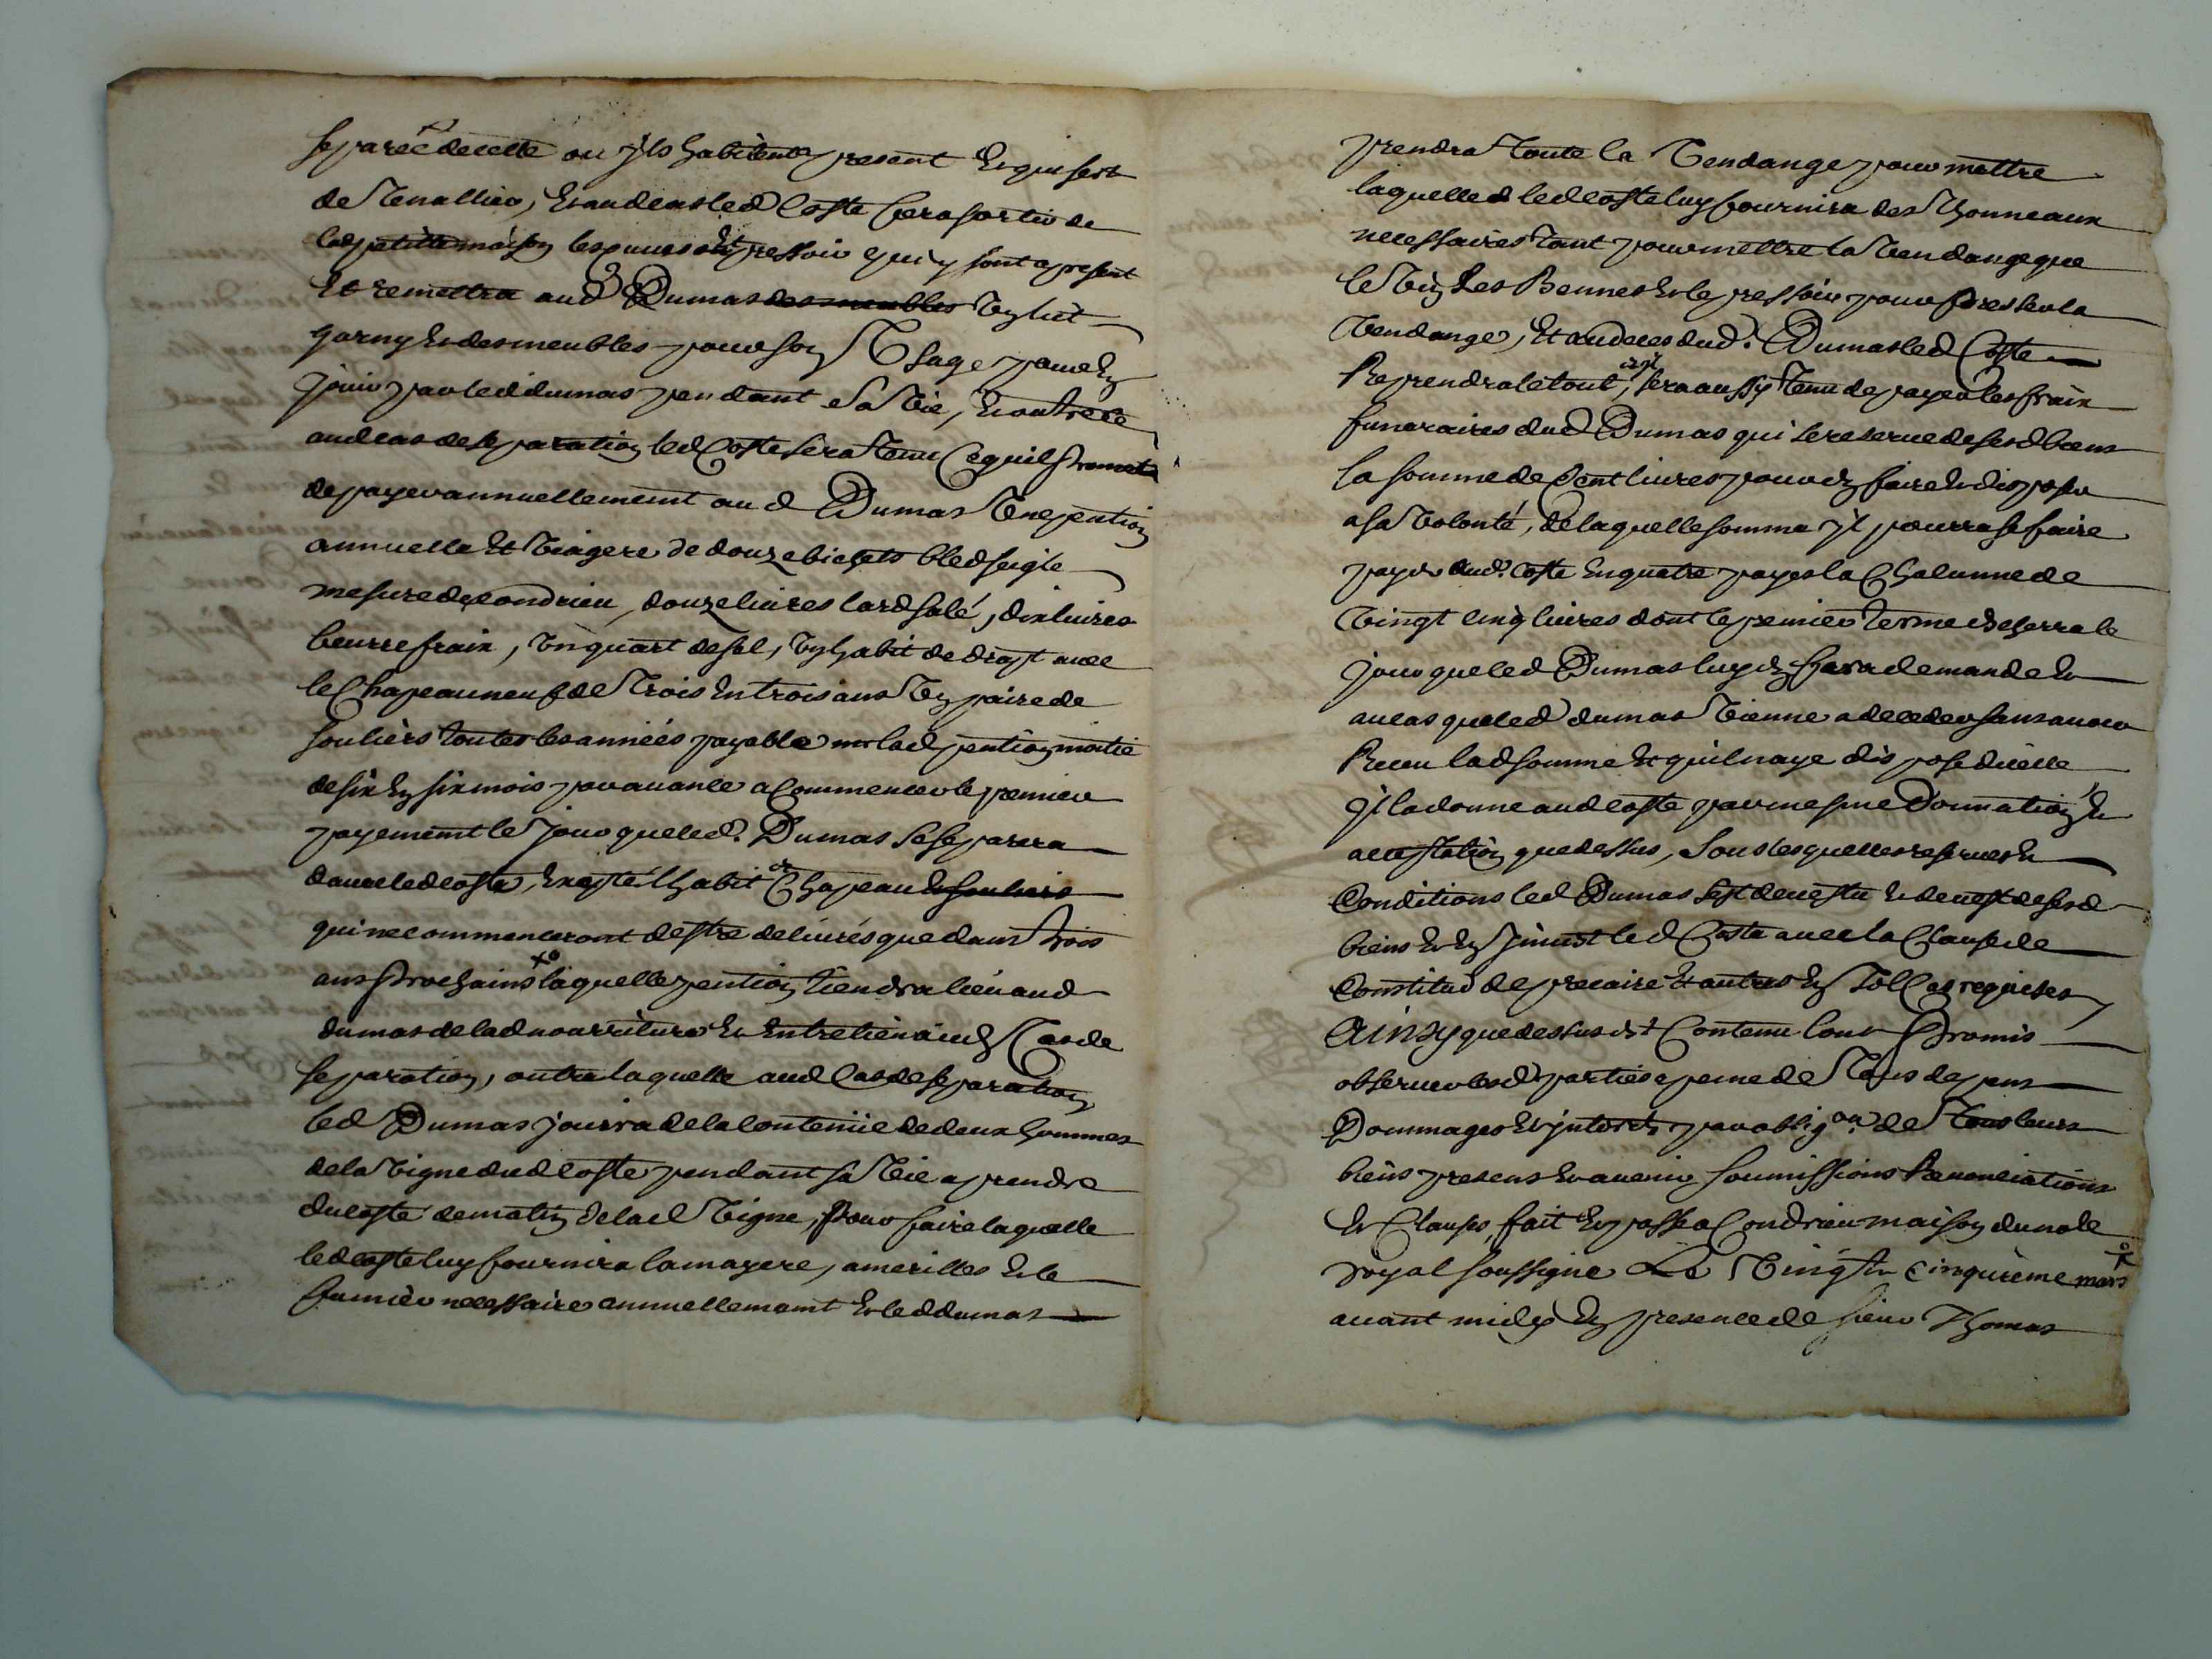 separée decelle ou jls habitent apresent et qui sert
de Tenallier, et audcas led Coste fera sortir de
lad petitte maison les cuues et pressoir qui y sont apresent
Et remettra aud Dumas des meubles un lict
garny et des meubles pour son Usage pour en
jouir par led dumas pendant sa vie, et outre ce
audcas de separation led Coste sera tenu Ce quil promet
de payer annuellement aud Dumas Une pention
annuelle et viagere de douze bichets bled seigle
mesure de Condrieu, douze liures lard salé, dix liures
beurre fraix, un quart de sel, un habit de drapt auec
le Chapeau neuf de Trois en trois ans un paire de
souliers toutes les années payable lad pention moitie
de six en six mois par auance a Commencer le premier
payement le jour que led. Dumas se separera
dauec led coste, excepté lhabit et Chapeau et souliers
qui ne commenceront destre deliurés que dans trois
ans prochains laquelle pention tiendra lieu aud
dumas de lad nourriture et Entretien aud Cas de
separation, outre laquelle aud Cas de separation
led Dumas jouira de la contenüe de deux hommes
de la vigne dud coste pendant sa vie a prendre
du costé de matin de lad Vigne, pour faire laquelle
led coste luy fournira la mayere, amerilles et le
fumier necessaire annuellement et led dumas
prendra toute la Vendange pour mettre
laquelle led coste luy fournira des Thonneaux
necessaires tant pour mettre la vendange que
le vin les Bennes et le pressoir pour presser la
Vendange, Et au deces dud. Dumas led Coste
Reprendra le tout, et il sera aussy tenu de payer les fraix
funeraires dud Dumas qui se reserue de sesd biens
la somme de Cent liures pour en faire et disposer
a sa Volonté, de laquelle somme jl pourra se faire
payer dud. coste en quatre payes la Chalunne de
Vingt cinq liures dont le premier terme escherra le
jour que led Dumas luy en fera demande et
au cas que led dumas vienne a deceder sans auoir
Receu lad somme et quil naye dispose dicelle
jl la donne aud coste par mesme Donnation et
acceptation que dessus, sous lesquelles reserues et
Conditions led Dumas sest deuestu et deuest de sesd
biens et en jnuest led Coste auec la Clause de
Constitud de precaire et autres en tel Cas requises
Ainsy que dessus est Contenu lont promis
obseruer lesd parties a peine de Tous depens
Dommages et jnterets par oblig.on de Tous leurs
biens presens et auenir soumissions Renonciations
et Clauses, fait et passé a Condrieu maison du nore
royal soussigne Le Vingt cinquieme mars
auant midy En presence de sieur Thomas